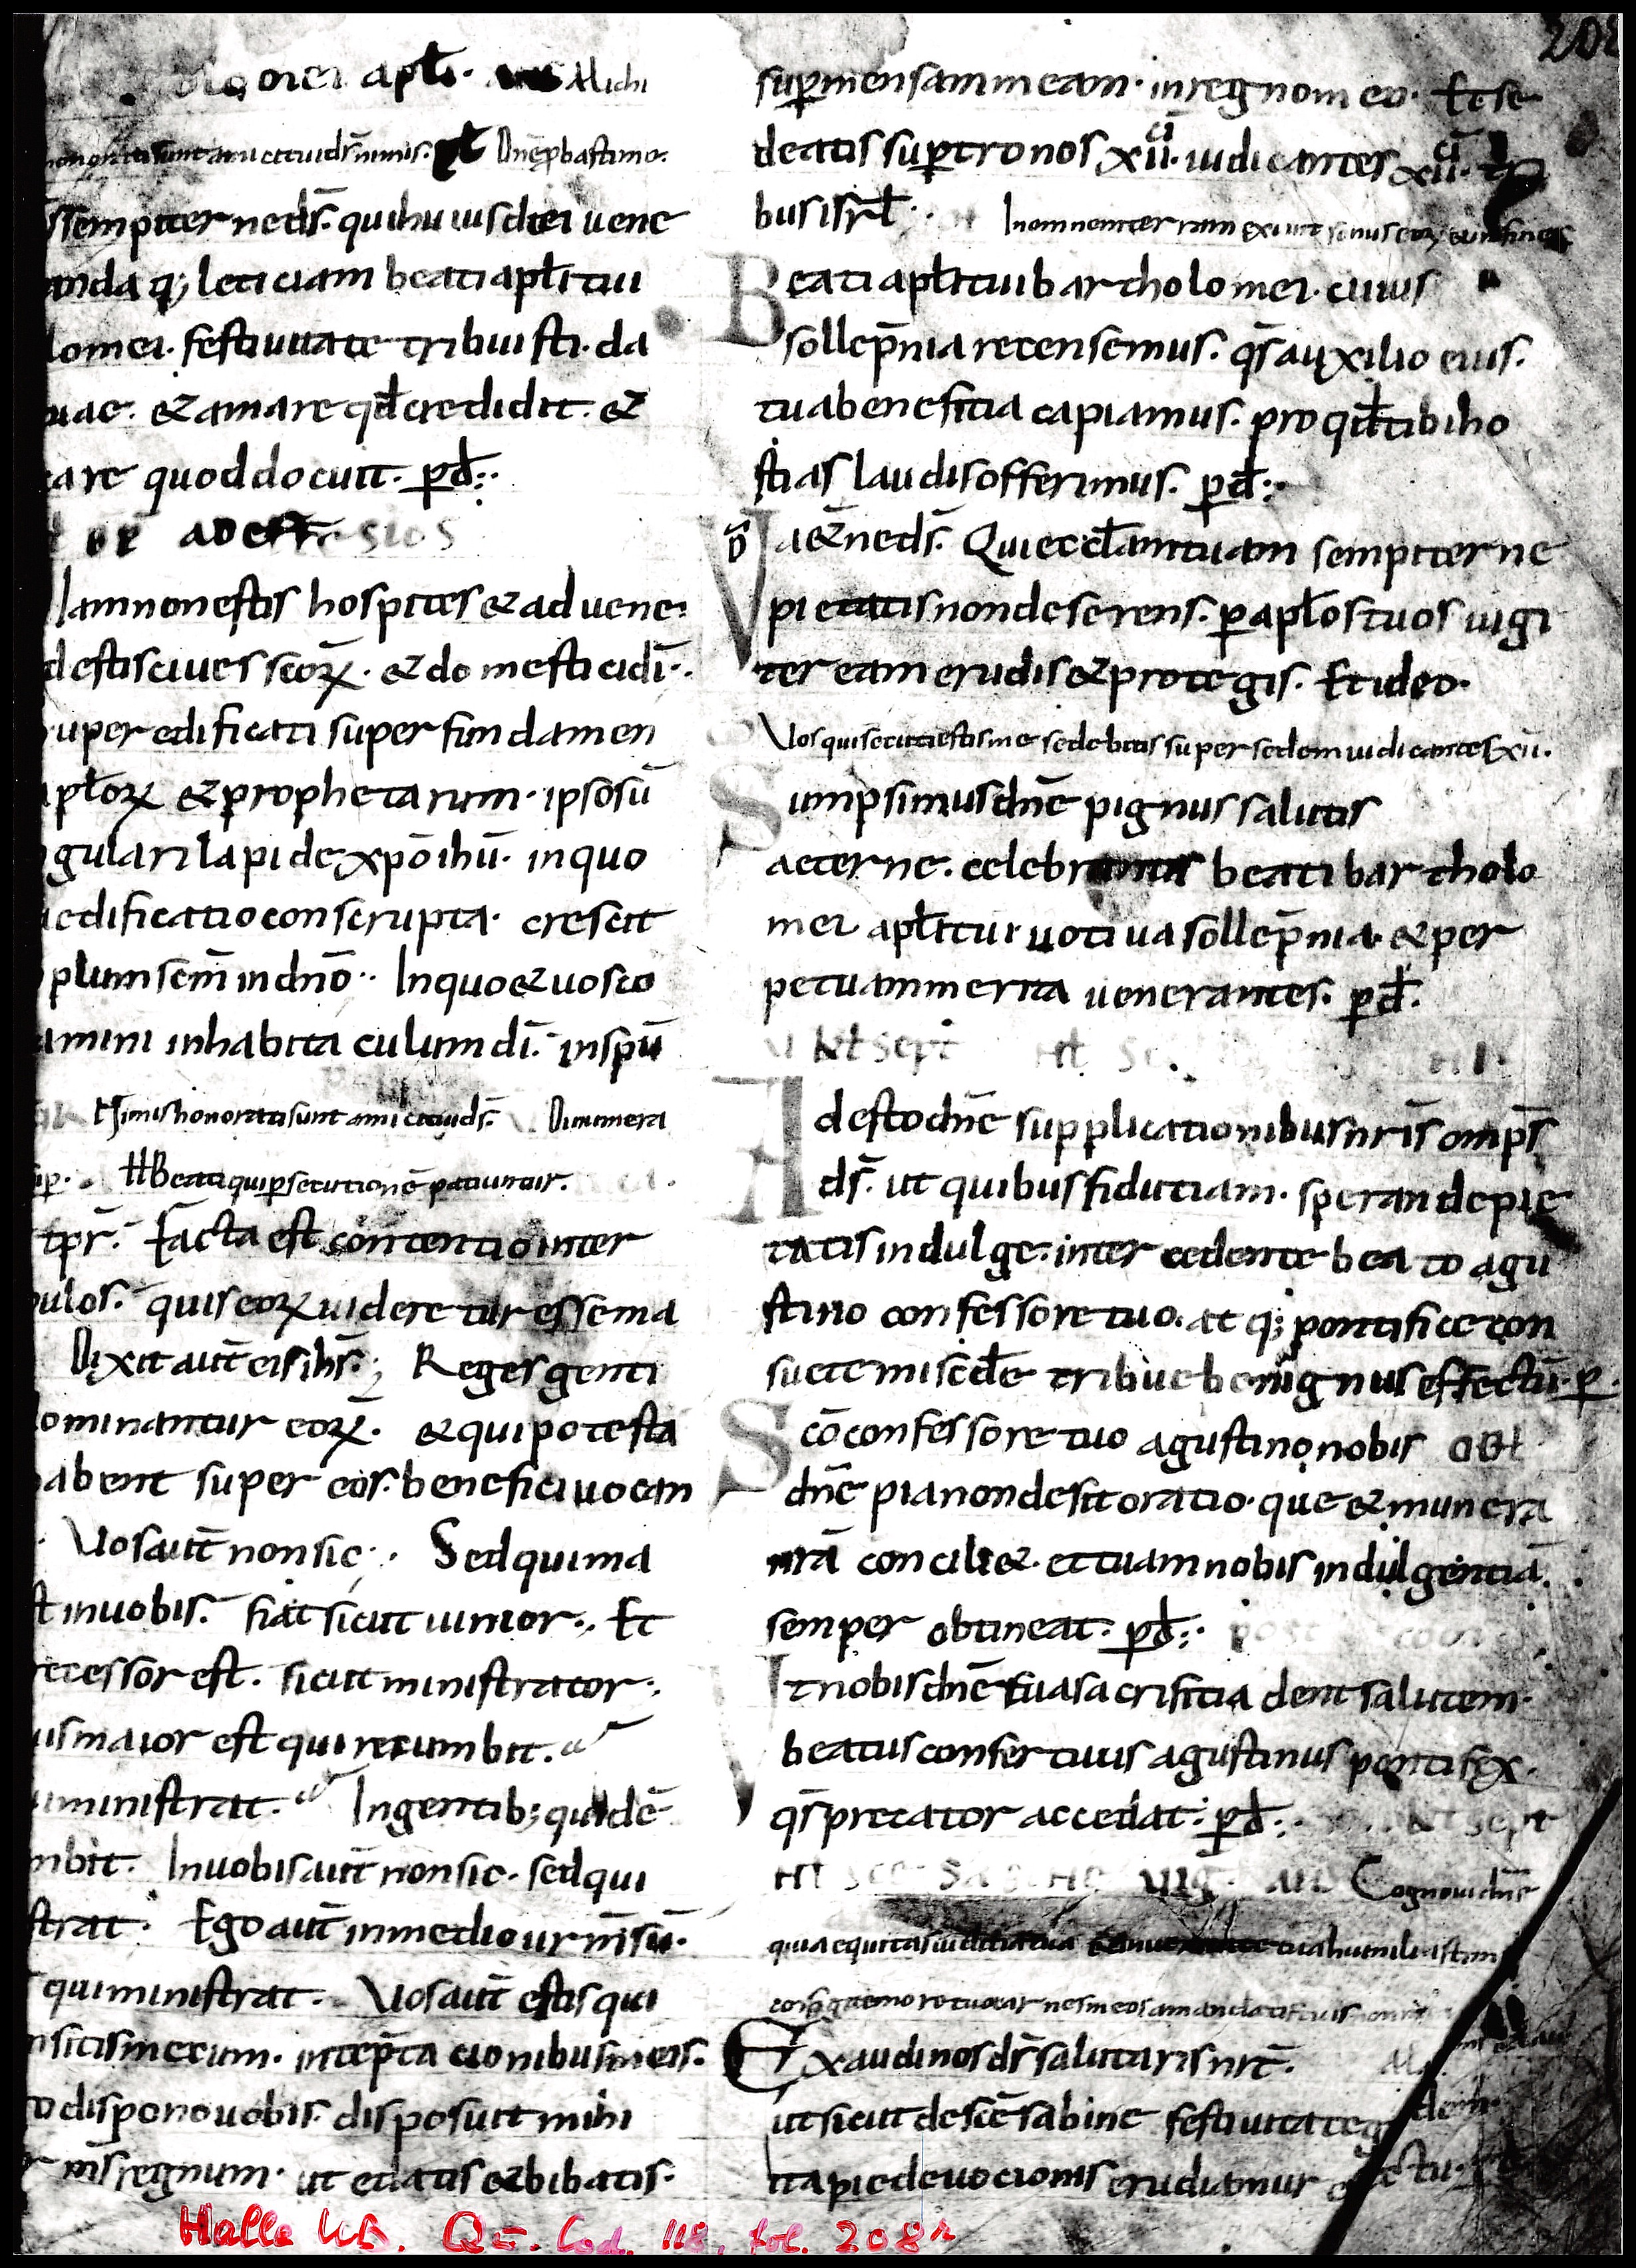 omei apłi. Michi
honorati sunt amici tui ds̄ nimis. Dnē pbasti me.
sempiterne ds̄. qui huius diei uene
anda q; leticiam beati apłi tui
lomei. festiuitate tribuisti. da
uae. & amare qđ credidit. &
care quod docuit. pđ.
ad effesios
Iam non estis hospites & aduene.
d estis ciues scōrꝝ. & domestici dī.
uperedificati super fundamen
apłorꝝ & prophetarum. ipso sū
gulari lapide xp̄o ihū. in quo
aedificatio constructa. crescit
plum scm̄ in dnō. In quo & uos co
amini inhabitaculum dī. in sp̄u
Nimis honorati sunt amici tui ds̄. Dinumera
Beati qui psecutionē patiuntur.
tpr̄. Facta est contentio inter
pulos. quis eorꝝ uideretur esse ma
Dixit aut̄ eis ihs̄. Reges genti
ominantur eorꝝ. & qui potesta
abent super eos. benefici uocan
Uos aut̄ non sic. Sed qui ma
st in uobis. fiat sicut iunior. Et
recessor est. sicut ministrator.
uis maior est qui recumbit. a
ministrat. a In gentib; quidē
mbit. In uobis aut̄ non sic. sed qui
strat. Ego aut̄ in medio ur̄m sū.
qui ministrat. Uos aut̄ estis qui
nsitis mecum. in tēptacionibus meis.
o dispono uobis. disposuit mihi
r m̄s regnum. ut edatis & bibatis.
208
sup mensam meam. in regno meo. Et se
deatis sup tronos xii. iudicantes xii. t
bus isrł. In omnem terram exiuit sonus eorꝝ & in fines
Beati apłi tui bartholomei. cuius
sollēpnia recensemus. qs̄ auxilio eius.
tua beneficia capiamus. pro qđ tibi ho
stias laudis offerimus. pđ.
VD ae&rne ds̄. Qui eccłam tuam sempiterne
pietatis non deserens. p apłos tuos uigi
ter eam erudis & protegis. Et ideo.
Uos qui secuti estis me sedebitis super sedem iudicantes xii.
Sumpsimus dnē pignus salutis
aeterne. celebrantes beati bartholo
mei apłi tui uotiua sollēpnia & per
petua merita uenerantes. pđ.
kł sept
Adesto dnē supplicationibus nr̄is omps̄
ds̄. ut quibus fidutiam. sperande pie
tatis indulge. intercedente beato agu
stino confessore tuo. atq; pontifice con
suete miscđe tribue benignus effectū. p.
Scō confessore tuo agustino nobis
dnē pia non desit oratio. que & munera
nr̄a concili&. et tuam nobis indulgentiā.
semper obtineat. pđ. post
Ut nobis dnē tua sacrificia dent salutem.
beatus confer tuus agustinus pontifex.
qs̄ precator accedat. pđ. kł sept
Cognoui dnē
quia equitas iudicia tua tua humiliasti me
Exaudi nos ds̄ salutaris nr̄.
ut sicut de scē sabine festiuitate
ita pie deuocionis erudiamur
Halle UB. Qu. Cod. 118, fol. 208r